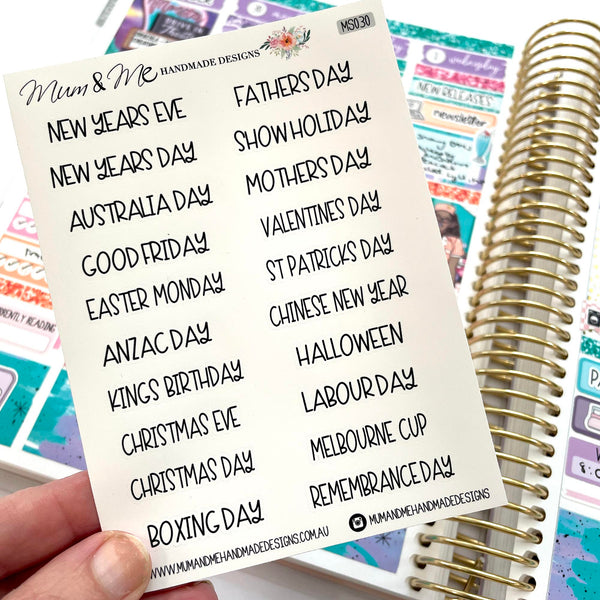 Mum & Me HANDMADE DESIGNS
MS030
NEW YEARS EVE
NEW YEARS DAY
AUSTRALIA DAY
GOOD FRIDAY
EASTER MONDAY
ANZAC DAY
KINGS BIRTHDAY
CHRISTMAS EVE
CHRISTMAS DAY
BOXING DAY
FATHERS DAY
SHOW HOLIDAY
MOTHERS DAY
VALENTINES DAY
ST PATRICKS DAY
CHINESE NEW YEAR
HALLOWEEN
LABOUR DAY
MELBOURNE CUP
REMEMBRANCE DAY
WWW.MUMANDMEHANDMADEDESIGNS.COM.AU
MUMANDMEHANDMADEDESIGNS
wednesday
NEW RELEASES
newsletter
READING